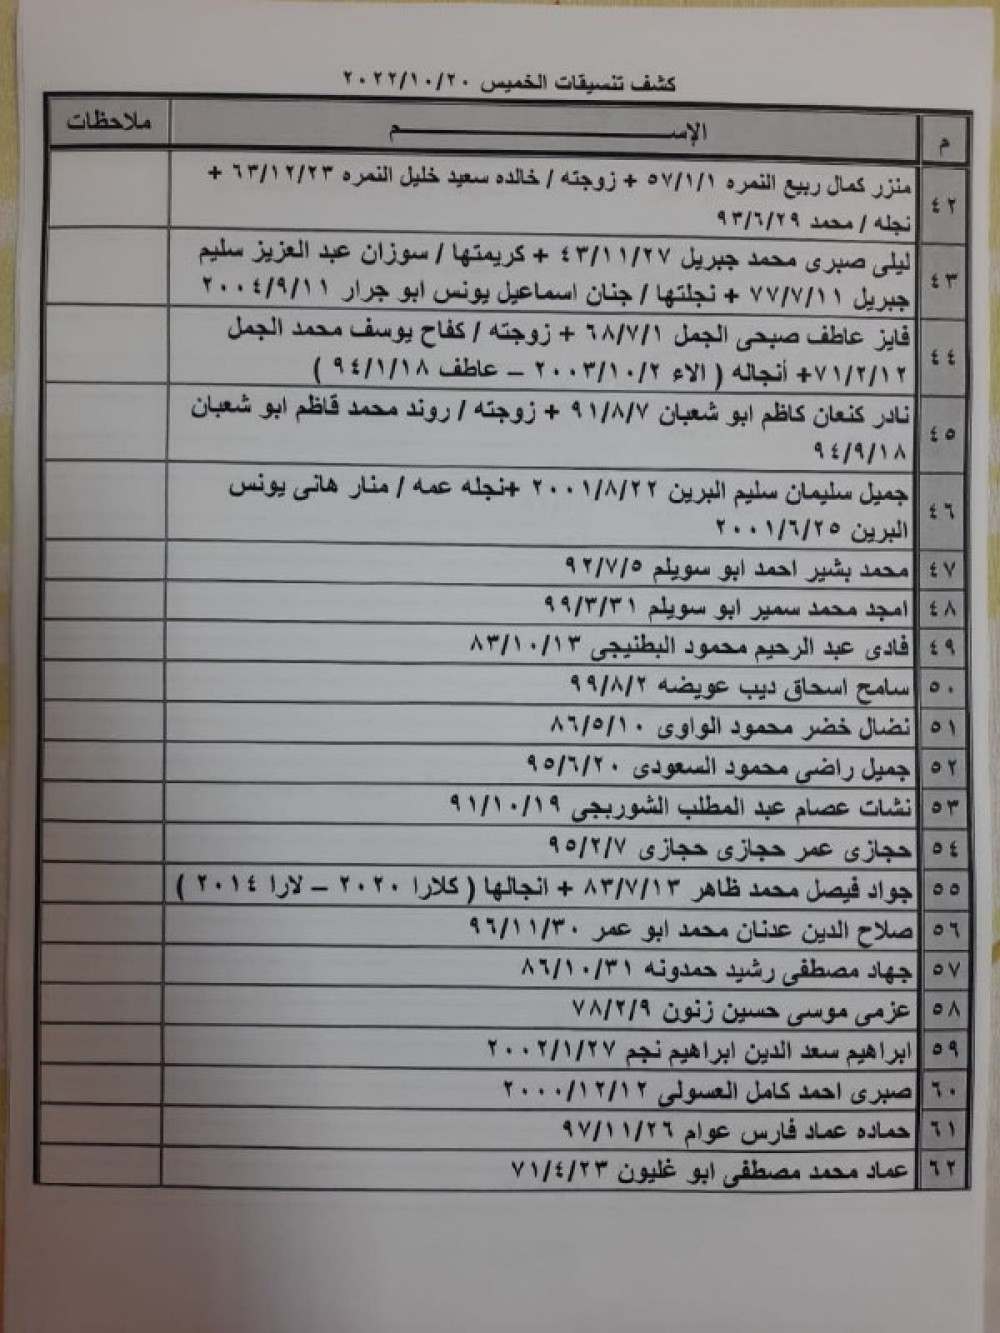 كشف تنسيقات الخميس ٢٠٢٢/١٠/٢٠
م الإســـــــــــــم ملاحظات
٤٢ منزر كمال ربيع النمره ٥٧/١/١ + زوجته / خالده سعيد خليل النمره ٦٣/١٢/٢٣ +
نجله / محمد ٩٣/٦/٢٩
٤٣ ليلى صبرى محمد جبريل ٤٣/١١/٢٧ + كريمتها / سوزان عبد العزيز سليم
جبريل ٧٧/٧/١١ + نجلتها / جنان اسماعيل يونس ابو جرار ٢٠٠٤/٩/١١
٤٤ فايز عاطف صبحى الجمل ٦٨/٧/١ + زوجته / كفاح يوسف محمد الجمل
٧١/٢/١٢+ أنجاله ( الاء ٢٠٠٣/١٠/٢ – عاطف ٩٤/١/١٨ )
٤٥ نادر كنعان كاظم ابو شعبان ٩١/٨/٧ + زوجته / روند محمد قاظم ابو شعبان
٩٤/٩/١٨
٤٦ جميل سليمان سليم البرين ٢٠٠١/٨/٢٢ +نجله عمه / منار هانى يونس
البرين ٢٠٠١/٦/٢٥
٤٧ محمد بشير احمد ابو سويلم ٩٢/٧/٥
٤٨ امجد محمد سمير ابو سويلم ٩٩/٣/٣١
٤٩ فادى عبد الرحيم محمود البطنيجى ٨٣/١٠/١٣
٥٠ سامح اسحاق ديب عويضه ٩٩/٨/٢
٥١ نضال خضر محمود الواوى ٨٦/٥/١٠
٥٢ جميل راضى محمود السعودى ٩٥/٦/٢٠
٥٣ نشات عصام عبد المطلب الشوربجى ٩١/١٠/١٩
٥٤ حجازى عمر حجازى حجازى ٩٥/٢/٧
٥٥ جواد فيصل محمد ظاهر ٨٣/٧/١٣ + انجالها ( كلارا ٢٠٢٠ – لارا ٢٠١٤ )
٥٦ صلاح الدين عدنان محمد ابو عمر ٩٦/١١/٣٠
٥٧ جهاد مصطفى رشيد حمدونه ٨٦/١٠/٣١
٥٨ عزمى موسى حسين زنون ٧٨/٢/٩
٥٩ ابراهيم سعد الدين ابراهيم نجم ٢٠٠٢/١/٢٧
٦٠ صبرى احمد كامل العسولى ٢٠٠٠/١٢/١٢
٦١ حماده عماد فارس عوام ٩٧/١١/٢٦
٦٢ عماد محمد مصطفى ابو غليون ٧١/٤/٢٣